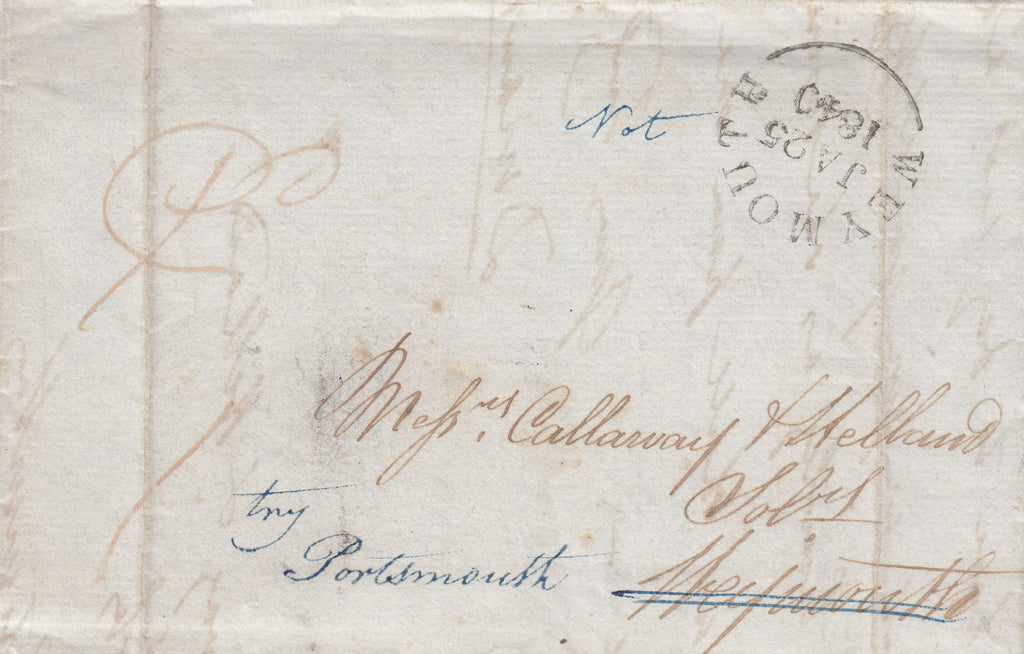 Not
WEYMOUTH
JA 25
1840
Messrs. Callaway & Helland
Solrs
try
Portsmouth
Weymouth